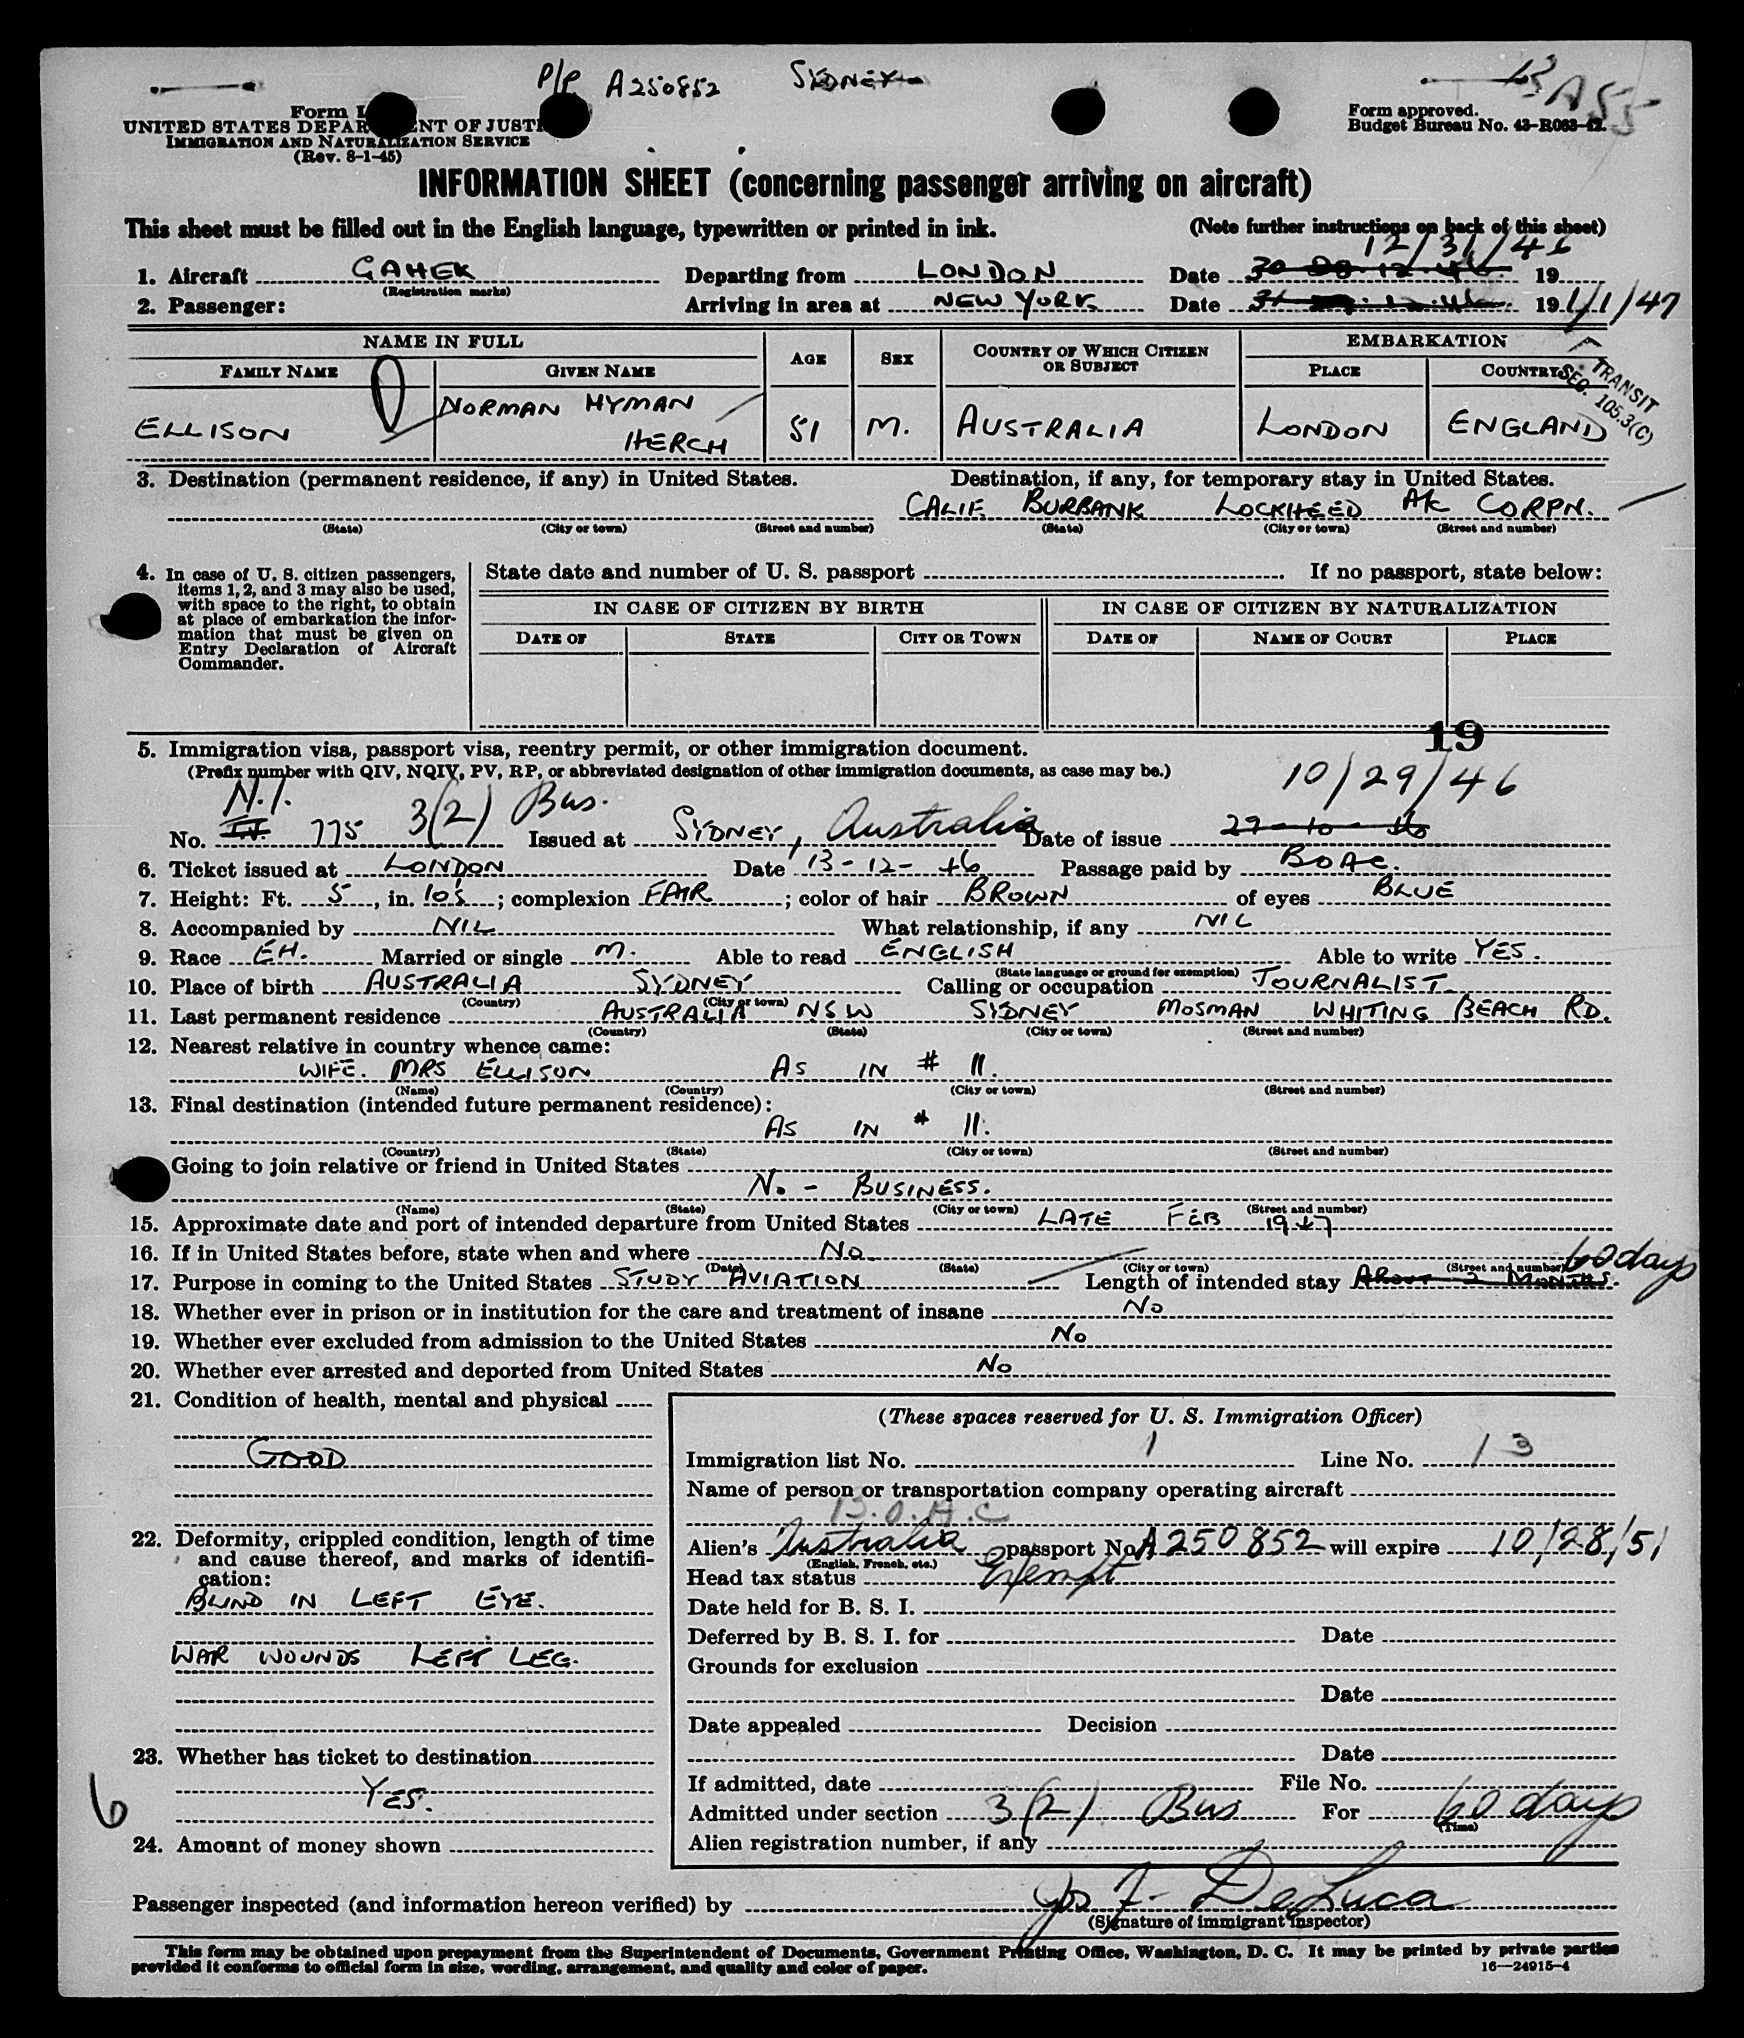 P/P A250852 SYDNEY
13 A55
Form I
UNITED STATES DEPARTMENT OF JUSTI
IMMIGRATION AND NATURALIZATION SERVICE
(Rev. 8-1-45)
Form approved.
Budget Bureau No. 43-R063-42.
INFORMATION SHEET (concerning passenger arriving on aircraft)
This sheet must be filled out in the English language, typewritten or printed in ink.
(Note further instructions on back of this sheet)
12/31/46
1. Aircraft GAHEK Departing from LONDON Date 30 19
(Registration marks)
2. Passenger: Arriving in area at NEW YORK Date 31 19 1/1/47
NAME IN FULL AGE SEX COUNTRY OF WHICH CITIZEN OR SUBJECT EMBARKATION
FAMILY NAME GIVEN NAME PLACE COUNTRY
TRANSIT
SEC. 105.3(C)
ELLISON NORMAN HYMAN HERCH 51 M. AUSTRALIA LONDON ENGLAND
3. Destination (permanent residence, if any) in United States. Destination, if any, for temporary stay in United States.
CALIF. BURBANK LOCKHEED A/C CORPN.
(State) (City or town) (Street and number) (State) (City or town) (Street and number)
4. In case of U. S. citizen passengers, items 1, 2, and 3 may also be used, with space to the right, to obtain at place of embarkation the information that must be given on Entry Declaration of Aircraft Commander.
State date and number of U. S. passport If no passport, state below:
IN CASE OF CITIZEN BY BIRTH IN CASE OF CITIZEN BY NATURALIZATION
DATE OF STATE CITY OR TOWN DATE OF NAME OF COURT PLACE
19
5. Immigration visa, passport visa, reentry permit, or other immigration document.
(Prefix number with QIV, NQIV, PV, RP, or abbreviated designation of other immigration documents, as case may be.)
10/29/46
N.I. 3(2) Bus.
No. 775 Issued at SYDNEY, Australia Date of issue 29-10-46
6. Ticket issued at LONDON Date 13-12-46 Passage paid by BOAC.
7. Height: Ft. 5, in. 10½; complexion FAIR; color of hair BROWN of eyes BLUE
8. Accompanied by NIL What relationship, if any NIL
9. Race EH. Married or single M. Able to read ENGLISH Able to write YES.
(State language or ground for exemption)
10. Place of birth AUSTRALIA SYDNEY Calling or occupation JOURNALIST
(Country) (City or town)
11. Last permanent residence AUSTRALIA NSW SYDNEY MOSMAN WHITING BEACH RD.
(Country) (State) (City or town) (Street and number)
12. Nearest relative in country whence came:
WIFE. MRS ELLISON AS IN # 11.
(Name) (Country) (City or town) (Street and number)
13. Final destination (intended future permanent residence):
AS IN # 11.
(Country) (State) (City or town) (Street and number)
Going to join relative or friend in United States
NO - BUSINESS.
(Name) (State) (City or town) (Street and number)
15. Approximate date and port of intended departure from United States LATE FEB 1947
16. If in United States before, state when and where NO
(Date) (State) (City or town) (Street and number)
60 days
17. Purpose in coming to the United States STUDY AVIATION Length of intended stay ABOUT 2 MONTHS.
18. Whether ever in prison or in institution for the care and treatment of insane NO
19. Whether ever excluded from admission to the United States NO
20. Whether ever arrested and deported from United States NO
21. Condition of health, mental and physical
GOOD
22. Deformity, crippled condition, length of time and cause thereof, and marks of identification:
BLIND IN LEFT EYE.
WAR WOUNDS LEFT LEG.
23. Whether has ticket to destination
YES.
6
24. Amount of money shown
(These spaces reserved for U. S. Immigration Officer)
Immigration list No. 1 Line No. 13
Name of person or transportation company operating aircraft
B.O.A.C
Alien's Australia passport No. A250852 will expire 10/28/51
(English, French, etc.)
Head tax status Exempt
Date held for B. S. I.
Deferred by B. S. I. for Date
Grounds for exclusion
Date
Date appealed Decision
Date
If admitted, date File No.
Admitted under section 3(2) Bus For 60 days
(Time)
Alien registration number, if any
Passenger inspected (and information hereon verified) by Jos F. DeLuca
(Signature of immigrant inspector)
This form may be obtained upon prepayment from the Superintendent of Documents, Government Printing Office, Washington, D. C. It may be printed by private parties
provided it conforms to official form in size, wording, arrangement, and quality and color of paper.
16—24915-4